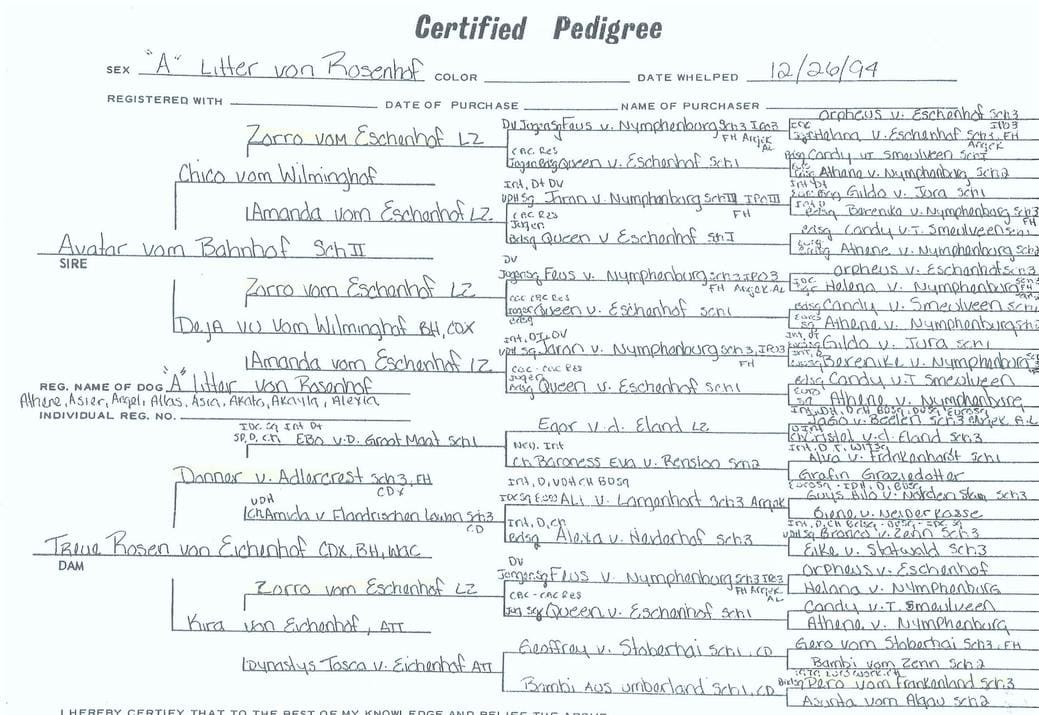 Certified Pedigree
SEX "A" Litter von Rosenhof COLOR DATE WHELPED 12/26/94
REGISTERED WITH DATE OF PURCHASE NAME OF PURCHASER
Orpheus v. Eschenhof Sch3
Zorro vom Eschenhof LZ
DV Jugensg Feus v. Nymphenburg Sch3 IPO3
FH Angek AL
Helana v. Eschenhof Sch3, FH
Angek
CAC Res
Queen v. Eschenhof Sch1
Bdsg Candy v.T. Smeulveen Sch1
Athene v. Nymphenburg Sch2
Chico vom Wilminghof
Int, Dt DV
VDH Sg Jaran v. Nymphenburg Sch III IPO III
FH
Gildo v. Jura Sch1
Amanda vom Eschenhof LZ
CAC Res
Jugen
Bdsg Queen v Eschenhof Sch I
Berenike v. Nymphenburg Sch3
Bdsg Candy v.T. Smeulveen Sch1
Athene v. Nymphenburg Sch2
Avatar vom Bahnhof Sch II
SIRE
DV
Jugensg Feus v. Nymphenburg Sch3 IPO3
FH Angek AL
Orpheus v. Eschenhof Sch3
Zorro vom Eschenhof LZ
Helena v. Nymphenburg
CAC CAC Res
Queen v. Eschenhof Sch1
Bdsg Candy v. Smeulveen Sch1
Athena v. Nymphenburg Sch2
Deja Vu vom Wilminghof BH, CDX
Int, DT, DV
VDH Sg. Jaran v. Nymphenburg Sch3, IPO3
FH
Gildo v. Jura Sch1
Amanda vom Eschenhof LZ
Berenike v. Nymphenburg
CAC - CAC Res
Jugen
Bdsg Queen v. Eschenhof Sch1
Bdsg Candy v.T Smeulveen
Athene v. Nymphenburg
REG. NAME OF DOG "A" Litter von Rosenhof
Athene, Asier, Angel, Atlas, Asia, Akato, Akayla, Alexia
INDIVIDUAL REG. NO.
IDC. Sg Int Dt
SP, D, Ch EBO v.D. Groot Maat Sch1
Egor v.d. Eland LZ
Jago v. Beelen Sch3 Angek A.L
Christel v.d. Eland Sch3
NED. Int
Ch Baroness Eva v. Rension Sm2
Alva v. Frankenhorst Sch1
Grafin Graziedotter
Donner v. Adlercrest Sch3, FH
CDX
Int, D, VDH CH BDSg
IDC Sg Euro Ali v. Langenhort Sch3 Angek
Guys Bilo v. Norden Stam Sch3
Biene v. Neider Rasse
VDH
Ch Amida v Flandrischen Lowen Sch3
CD
Int, D, Ch
Bdsg Alexa v. Havderhof Sch3
Bronco v. Zenn Sch3
Eike v. Statwald Sch3
Treue Rosen von Eichenhof CDX, BH, WAC
DAM
DV
Jungensg Feus v. Nymphenburg Sch3 IPO3
FH Angek
AL
Orpheus v. Eschenhof
Zorro vom Eschenhof LZ
Helana v. Nymphenburg
CAC - CAC Res
Queen v. Eschenhof Sch1
Candy v.T. Smeulveen
Athene v. Nymphenburg
Kira von Eichenhof, ATT
Geoffrey v. Stoberhai Sch1, CD
Gero vom Stoberhai Sch3, FH
Bambi vom Zenn Sch2
Dynastys Tosca v. Eichenhof ATT
Bambi Aus Umberland Sch1, CD
Pero vom Frankenland Sch.3
Asunta vom Algau Sch2
I HEREBY CERTIFY THAT TO THE BEST OF MY KNOWLEDGE AND BELIEF THE ABOVE